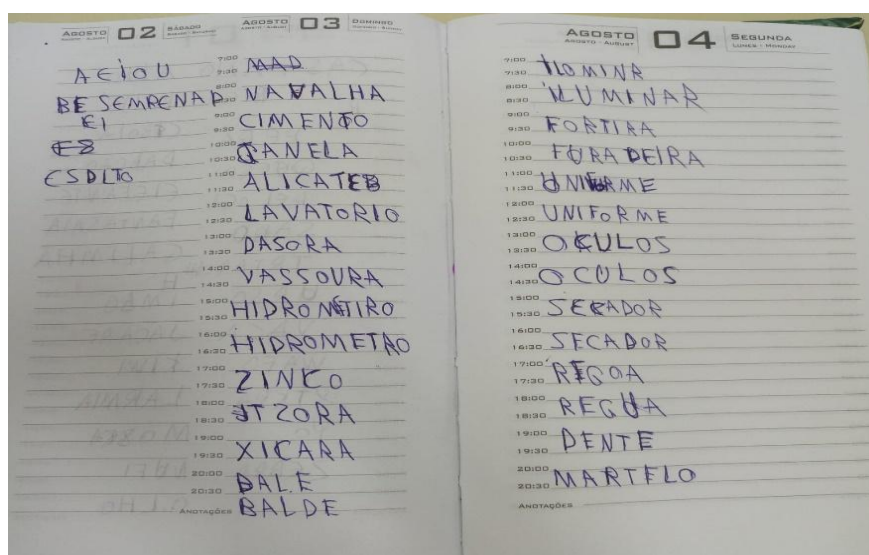 AGOSTO 02 SÁBADO
AEIOU
BE SEMPENAD
EI
ESDLTO
AGOSTO 03 DOMINGO
7:00
7:30 MAD
8:00
8:30 NAVALHA
9:00
9:30 CIMENTO
10:00
10:30 CANELA
11:00
11:30 ALICATEB
12:00
12:30 LAVATORIO
13:00
13:30 DASORA
14:00
14:30 VASSOURA
15:00
15:30 HIDROMETIRO
16:00
16:30 HIDROMETRO
17:00
17:30 ZINCO
18:00
18:30 TZORA
19:00
19:30 XICARA
20:00
20:30 BALE
ANOTAÇÕES BALDE
AGOSTO 04 SEGUNDA
AGOSTO - AUGUST LUNES - MONDAY
7:00
7:30 ILOMINR
8:00
8:30 ILUMINAR
9:00
9:30 FORTIRA
10:00
10:30 FURADEIRA
11:00
11:30 UNIFORME
12:00
12:30 UNIFORME
13:00
13:30 OCULOS
14:00
14:30 OCULOS
15:00
15:30 SECADOR
16:00
16:30 SECADOR
17:00
17:30 REGOA
18:00
18:30 REGUA
19:00
19:30 DENTE
20:00
20:30 MARTELO
ANOTAÇÕES